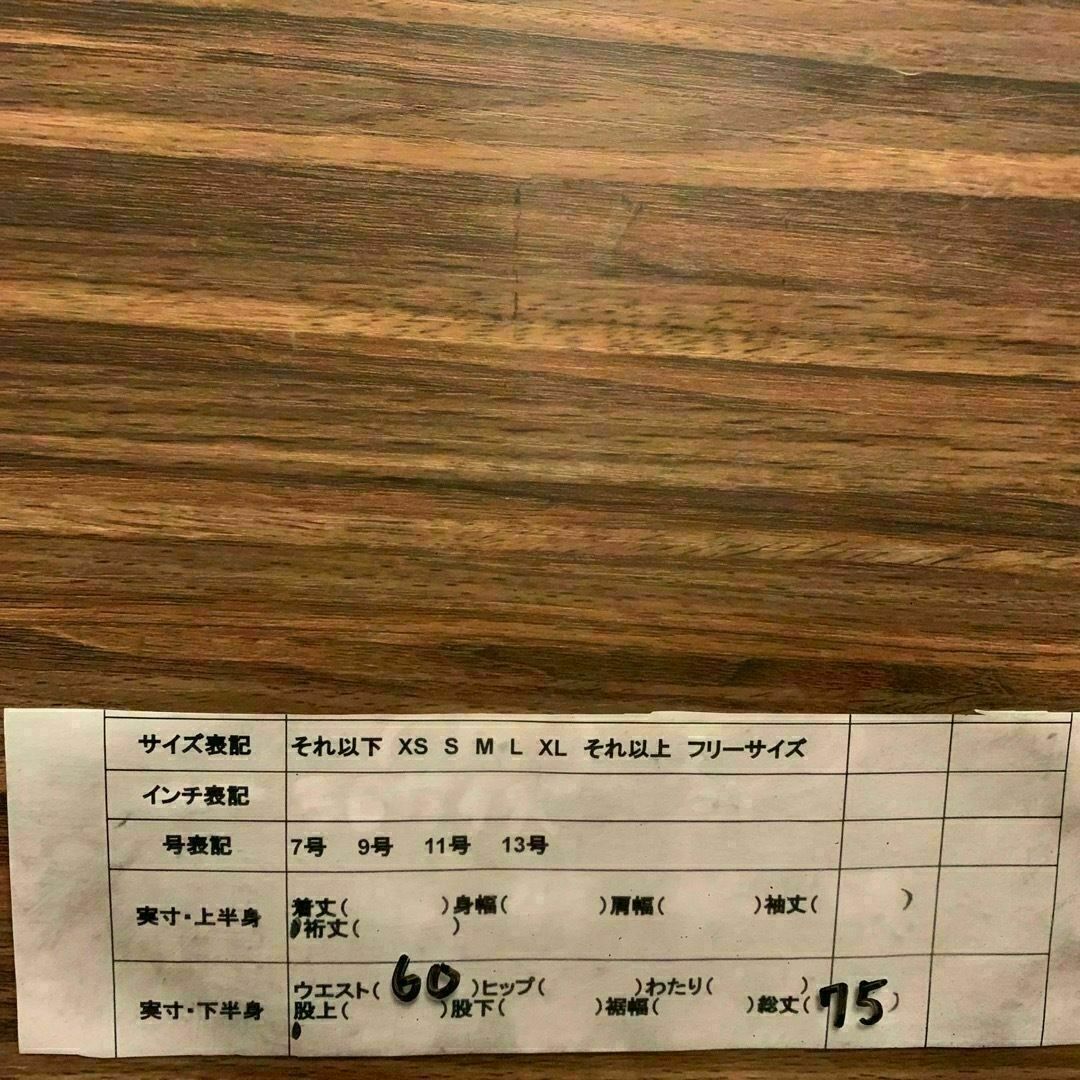 サイズ表記 それ以下 XS S M L XL それ以上 フリーサイズ
インチ表記
号表記 7号 9号 11号 13号
実寸・上半身 着丈( )身幅( )肩幅( )袖丈( )
裄丈( )
実寸・下半身 ウエスト( 60 )ヒップ( )わたり( )
股上( )股下( )裾幅( )総丈( 75 )